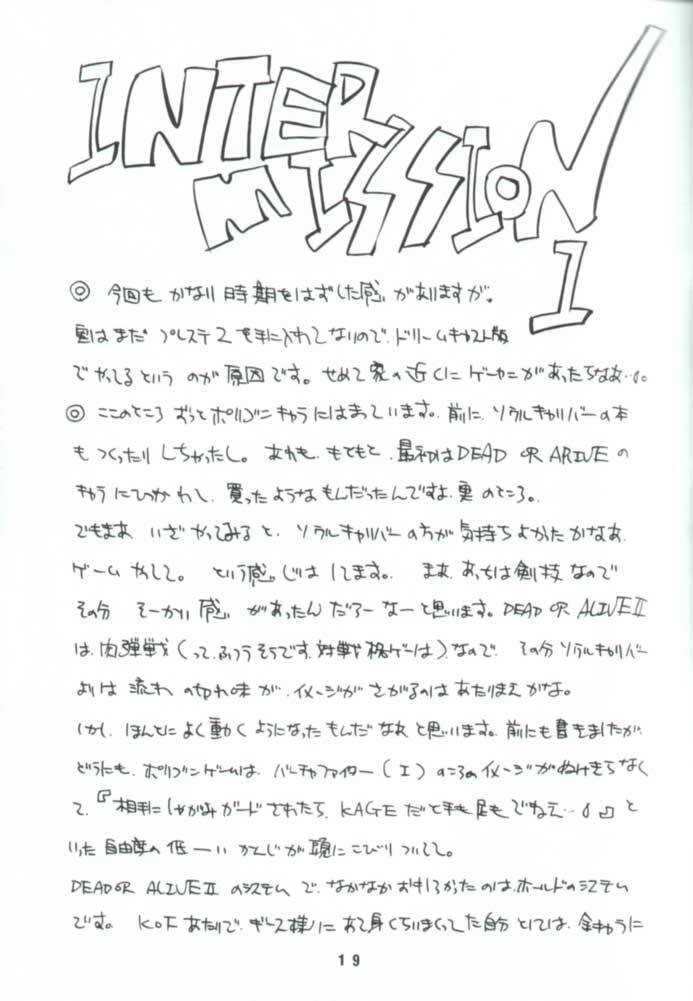 INTER
MISSION
1
◎ 今回も かなり 時期をはずした感がありますが。
実はまだ プレステ2を手に入れてないので、ドリームキャスト版
でやってるという のが原因です。せめて家の近くに ゲーセンがあったらなあ…。
◎ ここのところ ずっとポリゴンキャラにはまっています。前に、ソウルキャリバーの本
もつくったりしちゃったし。あれも、もともと、最初はDEAD OR ARIVEの
キャラにひかれて、買ったようなもんだったんですよ、実のところ。
でもまあ いざやってみると、ソウルキャリバーの方が気持ちよかったかなあ、
ゲームやってて。 という感じはしてます。 まあ、あっちは剣技なので
その分 そーかい感 があったんだろーなーと思います。DEAD OR ALIVEⅡ
は、肉弾戦(って、ふつうそうです、対戦格ゲーは)なので、その分ソウルキャリバー
よりは 流れ の切れ味が、イメージがさがるのはあたりまえかな。
しかし、ほんとによく動くようになったもんだなあと思います。前にも書きましたが、
どうにも、ポリゴンゲームは、バーチャファイター(Ⅰ)のころのイメージがぬけきらなく
て、『相手にしゃがみガードされたら、KAGEだと手も足もでねえ…。』と
いった自由度の低ーい かんじが頭にこびりついてて。
DEAD OR ALIVEⅡ のシステムで、なかなかおもしろかったのは、ホールドのシステム
です。 KOFあたりで、ギース様にあて身くらいまくってた自分としては、全キャラに
19